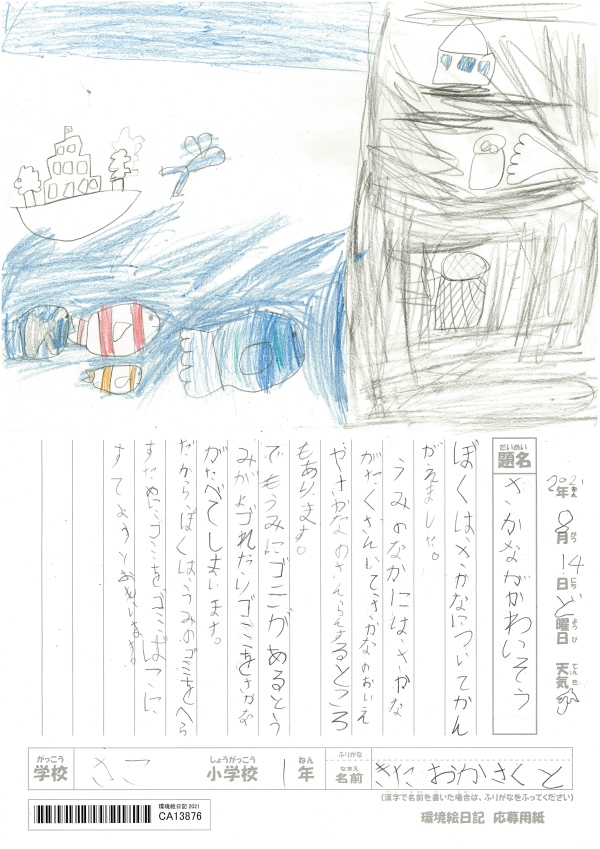 2021年ねん 8月がつ 14日にち ど曜日ようび 天気てんき
題名だいめい さかながかわいそう
ぼくはさかなについてかん
がえました。
うみのなかには、さかな
がたくさんいてさかなのおいえ
やさかなのさんらんするところ
もあります。
でもうみにゴミがあるとう
みがよごれたりゴミをさかな
がたべてしまいます。
だからぼくは、うみのゴミをへら
すためにゴミをゴミばこに、
すてようとおもいます。
学校がっこう さこ 小学校しょうがっこう 1年ねん ふりがな 名前なまえ きたおかさくと
(漢字で名前を書いた場合は、ふりがなをふってください)
環境絵日記 2021
CA13876
環境絵日記 応募用紙